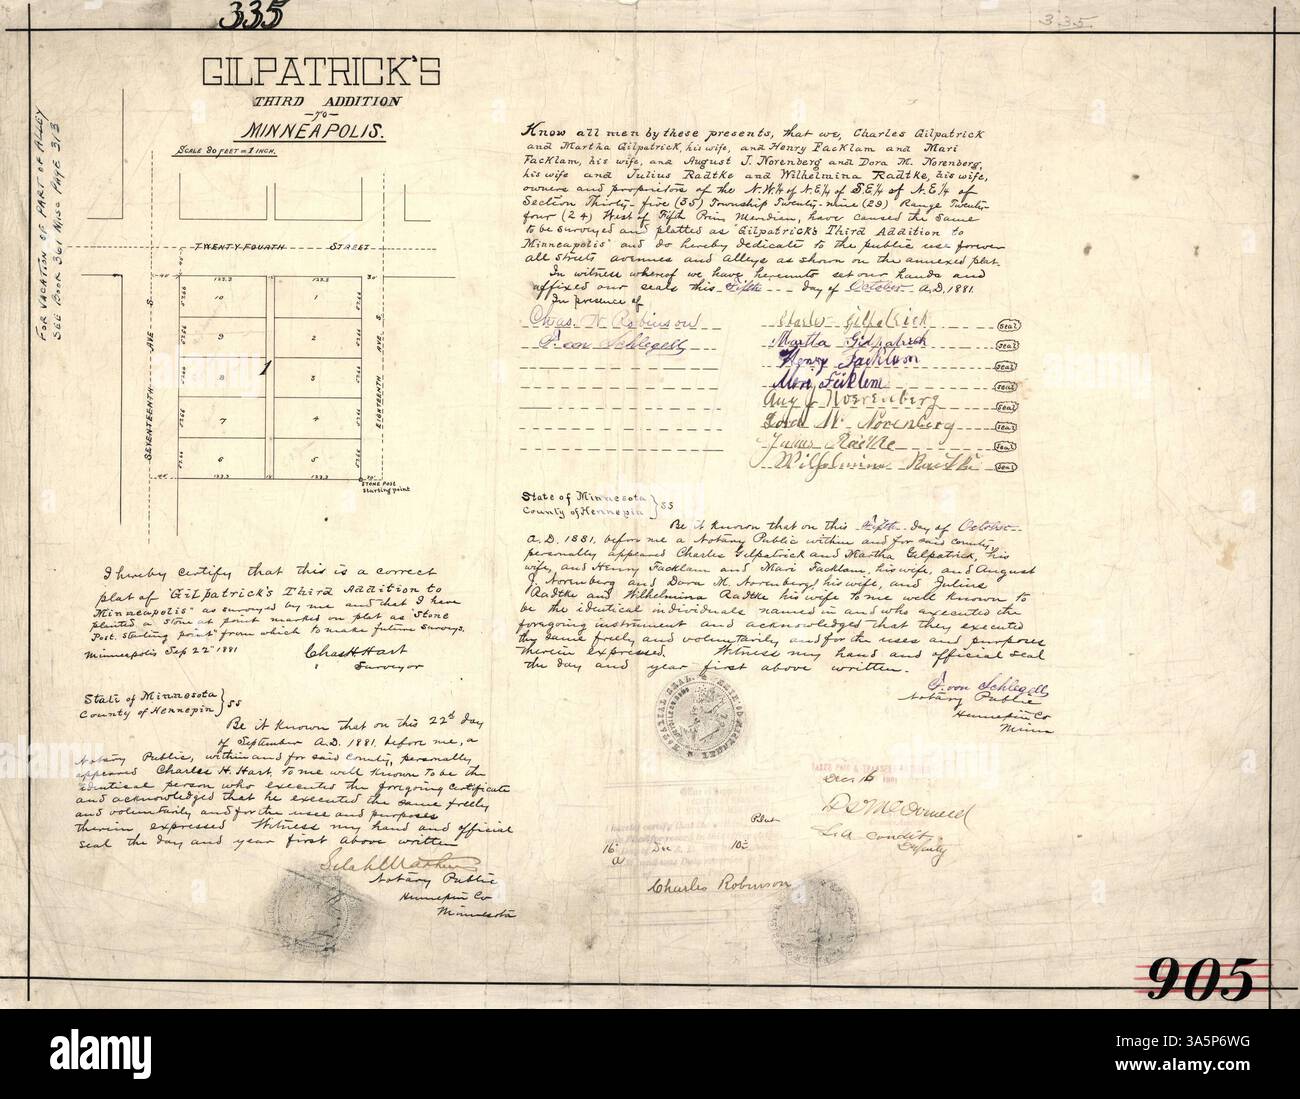 335
335
GILPATRICK'S
THIRD ADDITION
-TO-
MINNEAPOLIS.
SCALE 80 FEET = 1 INCH.
FOR VACATION OF PART OF ALLEY
SEE BOOK 361 MISC PAGE 313
TWENTY FOURTH STREET
SEVENTEENTH AVE S.
EIGHTEENTH AVE S.
133.3 133.3
10 1
9 2
8 1 3
7 4
6 5
133.3 133.3
STONE POST
Starting point
I hereby certify that this is a correct
plat of "Gilpatrick's Third Addition to
Minneapolis" as surveyed by me and that I have
planted a stone at point marked on plat as "Stone
Post. Starting point" from which to make future surveys.
Minneapolis Sep 22" 1881
Chas H. Hart
Surveyor
State of Minnesota
County of Hennepin } SS
Be it known that on this 22d day
of September A.D. 1881. before me, a
Notary Public, within and for said county, personally
appeared Charles H. Hart, to me well known to be the
identical person who executed the foregoing certificate
and acknowledged that he executed the same freely
and voluntarily and for the uses and purposes
therein expressed Witness my hand and official
seal the day and year first above written
Notary Public
Hennepin Co
Minnesota
Know all men by these presents, that we, Charles Gilpatrick
and Martha Gilpatrick, his wife, and Henry Facklam and Mari
Facklam, his wife, and August J. Norenberg and Dora M. Norenberg,
his wife and Julius Radtke and Wilhelmina Radtke, his wife,
owners and proprietors of the N.W.¼ of N.E.¼ of S.E.¼ of N.E.¼ of
Section Thirty-five (35) Township Twenty-nine (29) Range Twenty-
four (24) West of Fifth Prin Meridian, have caused the same
to be surveyed and platted as "Gilpatrick's Third Addition to
Minneapolis" and do hereby dedicate to the public use forever
all streets avenues and alleys as shown on the annexed plat.
In witness whereof we have hereunto set our hands and
affixed our seals this Fifth day of October A.D. 1881.
In presence of
Chas. W Robinson
F. von Schlegell
Charles Gilpatrick (seal)
Martha Gilpatrick (seal)
Henry Facklam (seal)
Mary Facklam (seal)
Aug J Noerenberg (seal)
Dora M. Norenberg (seal)
Julius Radtke (seal)
Wilhelmina Radtke (seal)
State of Minnesota
County of Hennepin } SS
Be it known that on this Fifth day of October
A.D. 1881, before me a Notary Public within and for said county,
personally appeared Charles Gilpatrick and Martha Gilpatrick, his
wife, and Henry Facklam and Mari Facklam, his wife, and August
J. Norenberg and Dora M. Norenberg, his wife, and Julius
Radtke and Wilhelmina Radtke his wife to me well known to
be the identical individuals named in and who executed the
foregoing instrument and acknowledged that they executed
the same freely and voluntarily and for the uses and purposes
therein expressed. Witness my hand and official seal
the day and year first above written.
F. von Schlegell
Notary Public
Hennepin Co
Minn
NOTARIAL SEAL
Dec 16
Deputy
Plat
16 Dec 10
a
Charles Robinson
905
alamy
Image ID: 3A5P6WG
www.alamy.com